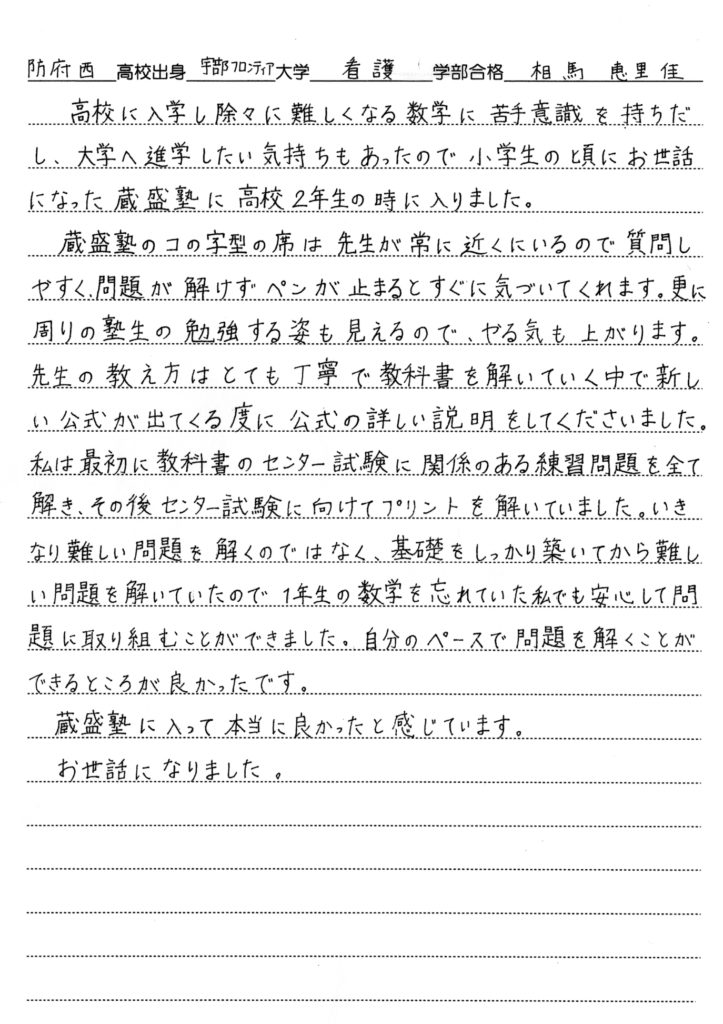 防府西 高校出身 宇部フロンティア大学 看護 学部合格 相馬 恵里佳
高校に入学し除々に難しくなる数学に苦手意識を持ちだ
し、大学へ進学したい気持ちもあったので小学生の頃にお世話
になった蔵盛塾に高校2年生の時に入りました。
蔵盛塾のコの字型の席は先生が常に近くにいるので質問し
やすく、問題が解けずペンが止まるとすぐに気づいてくれます。更に
周りの塾生の勉強する姿も見えるので、やる気も上がります。
先生の教え方はとても丁寧で教科書を解いていく中で新し
い公式が出てくる度に公式の詳しい説明をしてくださいました。
私は最初に教科書のセンター試験に関係のある練習問題を全て
解き、その後センター試験に向けてプリントを解いていました。いき
なり難しい問題を解くのではなく、基礎をしっかり築いてから難し
い問題を解いていたので1年生の数学を忘れていた私でも安心して問
題に取り組むことができました。自分のペースで問題を解くことが
できるところが良かったです。
蔵盛塾に入って本当に良かったと感じています。
お世話になりました。